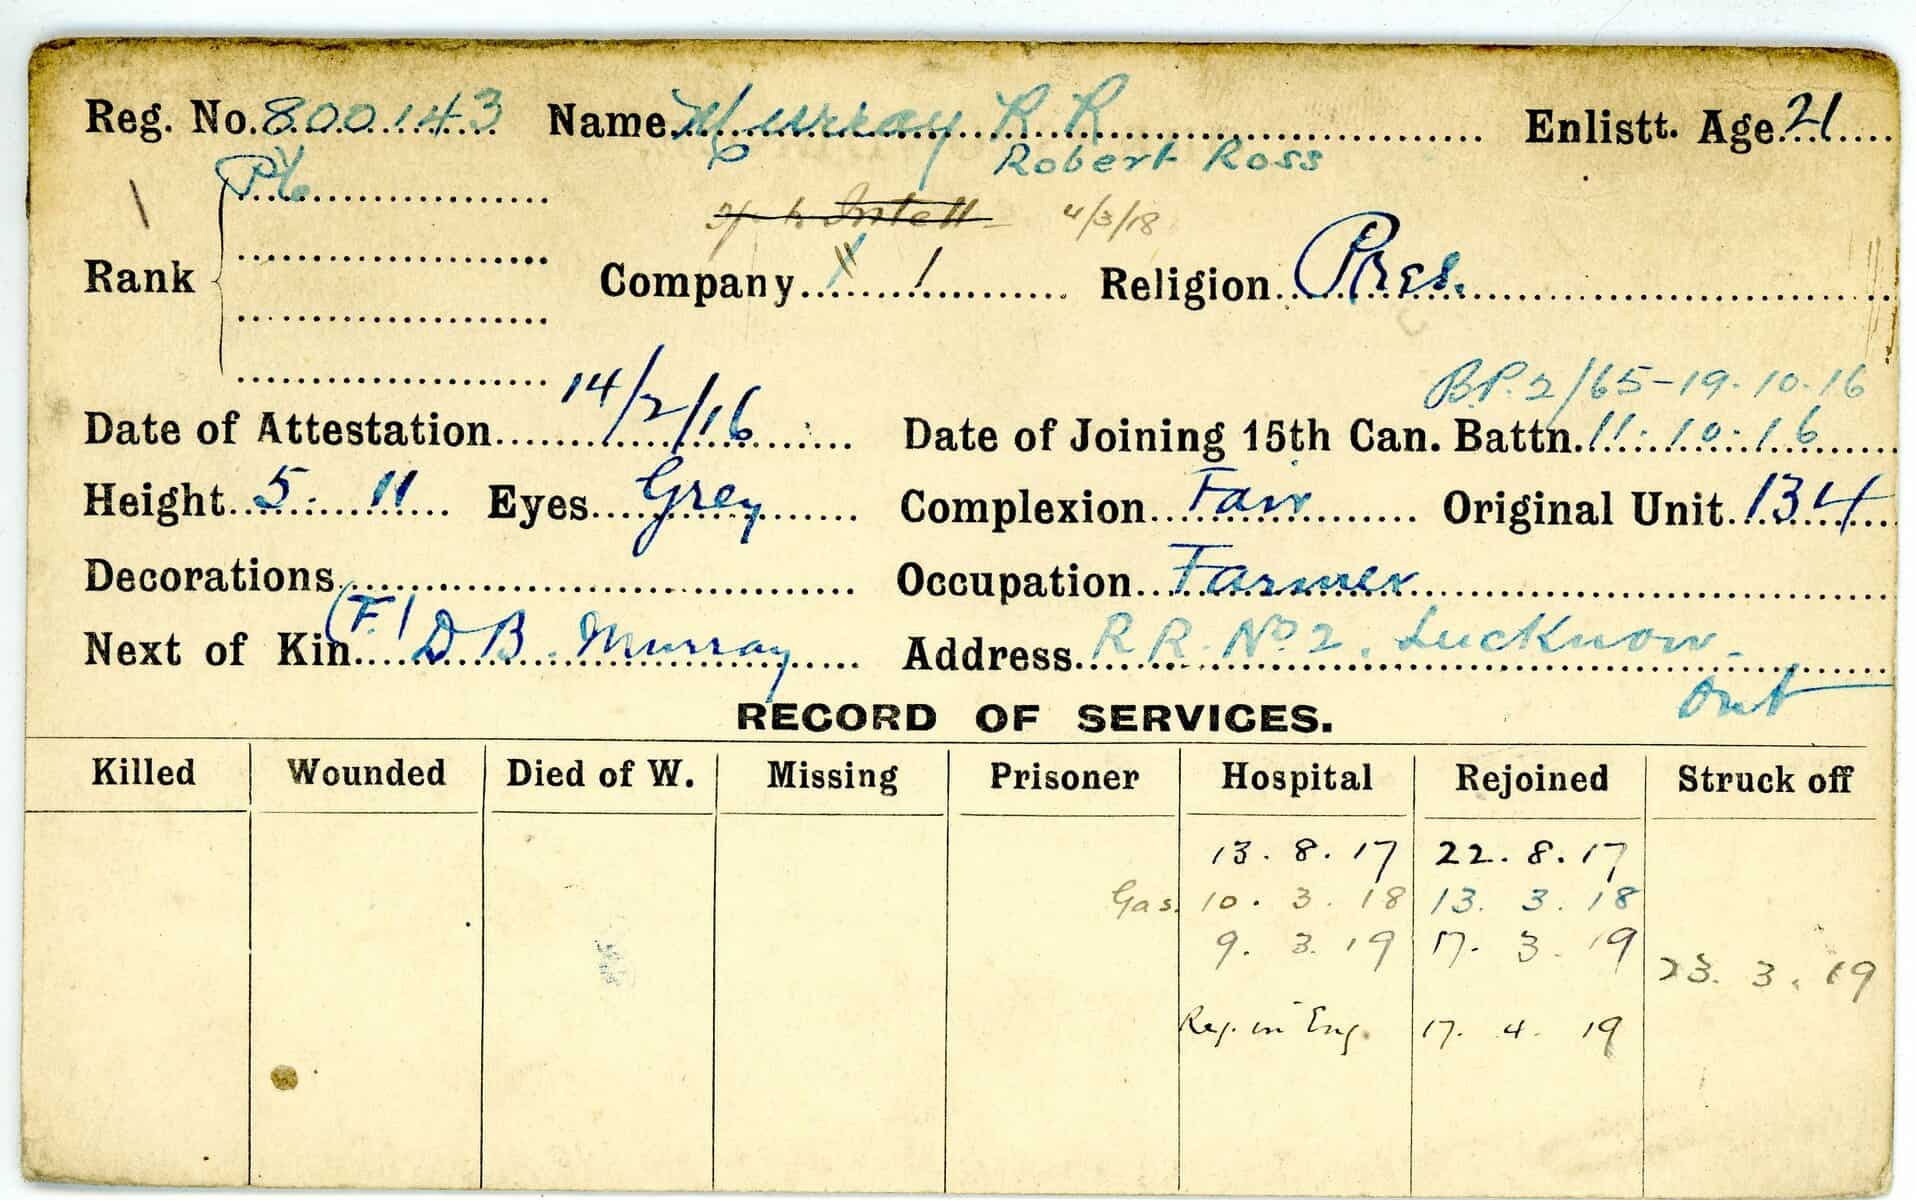 Reg. No. 800143 Name Murray R R Enlistt. Age 21
Pte Robert Ross
Intell 4/3/18
Rank Company 1 Religion Pres.
14/2/16 B.P. 2/65-19.10.16
Date of Attestation Date of Joining 15th Can. Battn. 11.10.16
Height 5. 11 Eyes Grey Complexion Fair Original Unit 134
Decorations Occupation Farmer
Next of Kin (F.) D B. Murray Address R R. No 2. Lucknow.
Ont
RECORD OF SERVICES.
Killed Wounded Died of W. Missing Prisoner Hospital Rejoined Struck off
13. 8. 17 22. 8. 17
Gas. 10. 3. 18 13. 3. 18
9. 3. 19 17. 3. 19
23. 3. 19
in Eng. 17. 4. 19